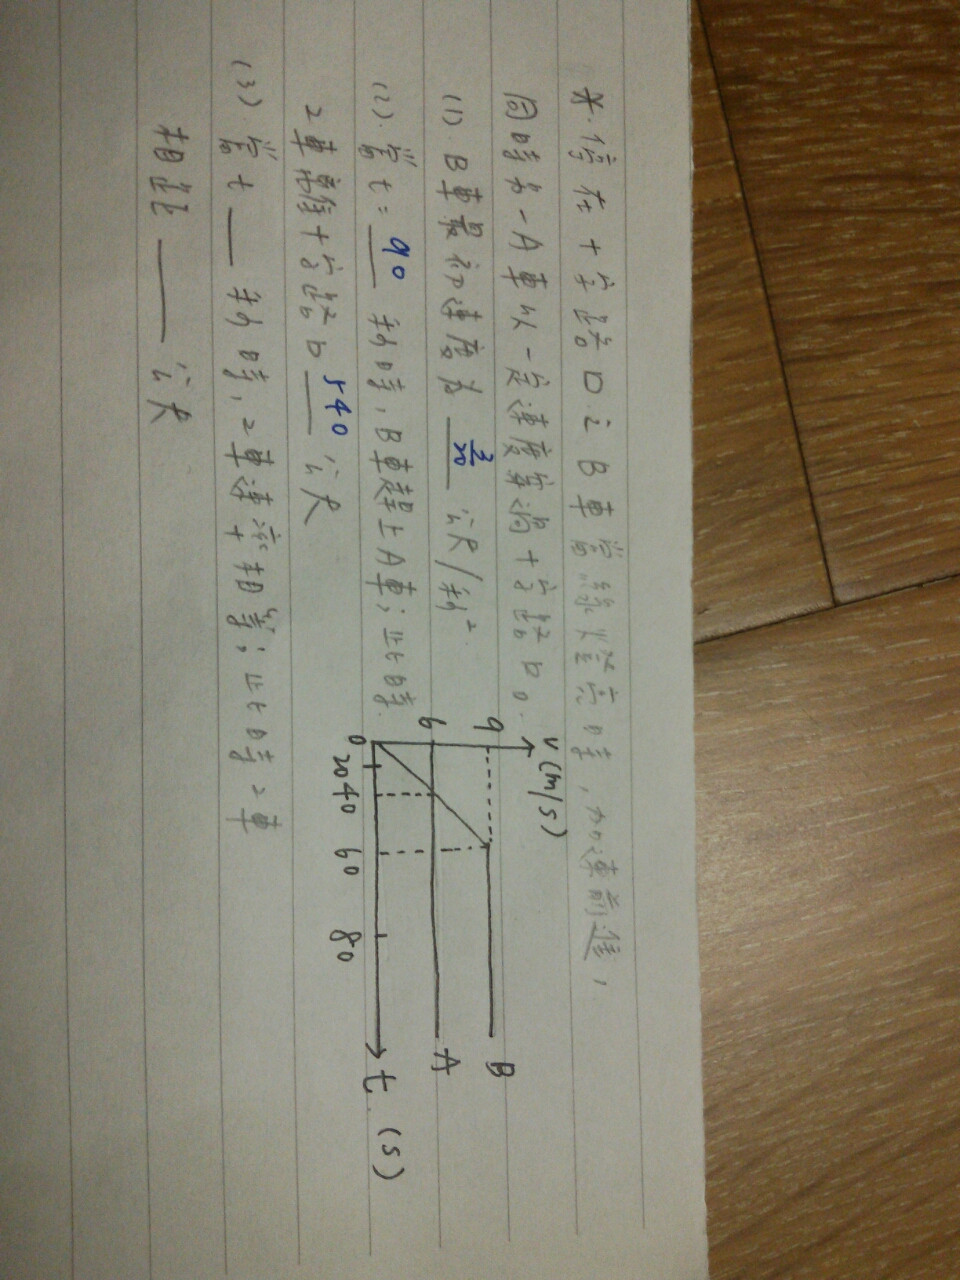 ※.停在十字路口之B車當綠燈亮時，加速前進，
同時另一A車以一定速度窜過十字路口。
(1). B車最初速度為 3/20 公尺/秒².
(2). 當t= 90 秒時，B車趕上A車；此時
2車離十字路口 540 公尺
(3) 當t ___ 秒時，2車速率相等；此時2車
相距 ___ 公尺
v(m/s)
9
6
0
20
40
60
80
B
A
t (s)